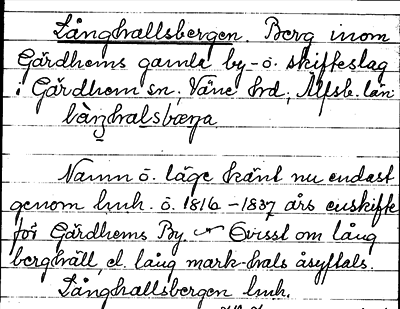 Långhallsbergen. Berg inom
Gärdhems gamla by- o. skifteslag
i Gärdhem sn, Väne hrd, Älfsb. län
Namn o. läge känt nu endast
genom lmh. o. 1816-1837 års enskifte
för Gärdhems By. Ovisst om lång
berghäll, el. lång mark-hals åsyftats.
Långhallsbergen lmh.